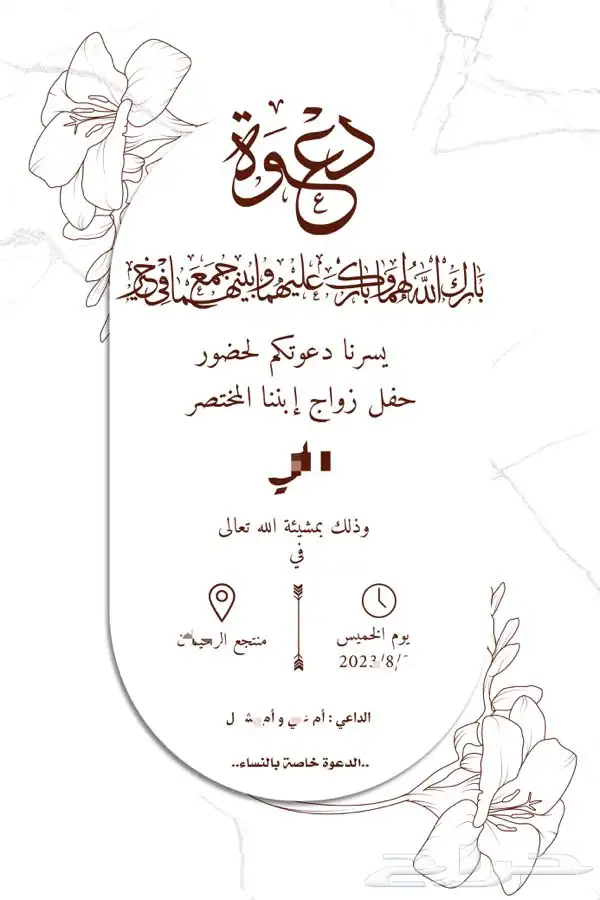 دعوة
بارك الله لهما وبارك عليهما وجمع بينهما في خير
يسرنا دعوتكم لحضور
حفل زواج إبننا المختصر
وذلك بمشيئة الله تعالى
في
منتجع
يوم الخميس
2023/8/
الداعي : أم و أم
..الدعوة خاصة بالنساء..
حراج